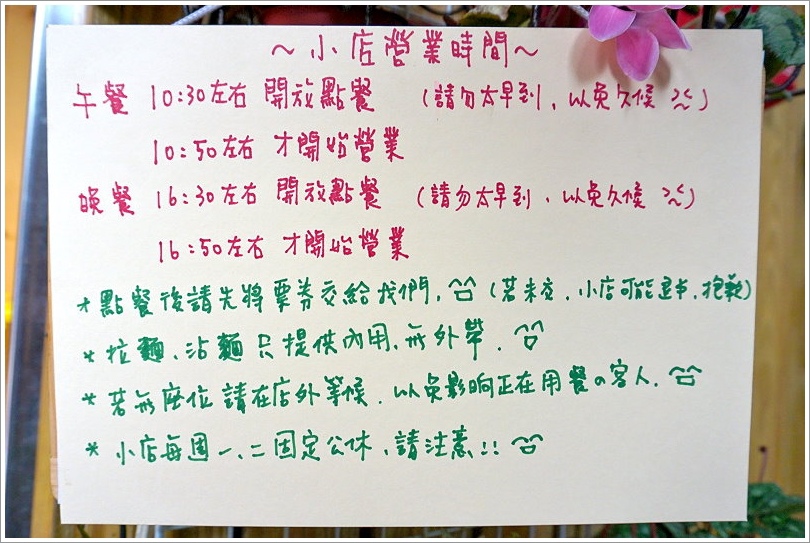 ～小店營業時間～
午餐 10:30左右 開放點餐 (請勿太早到、以免久候)
10:50左右 才開始營業
晚餐 16:30左右 開放點餐 (請勿太早到、以免久候)
16:50左右 才開始營業
*點餐後請先將票券交給我們, (若未交, 小店可能退書, 抱歉)
*拉麵、沾麵只提供內用、無外帶.
*若無座位請在店外等候. 以免影响正在用餐の客人.
*小店每週一、二固定公休、請注意!!